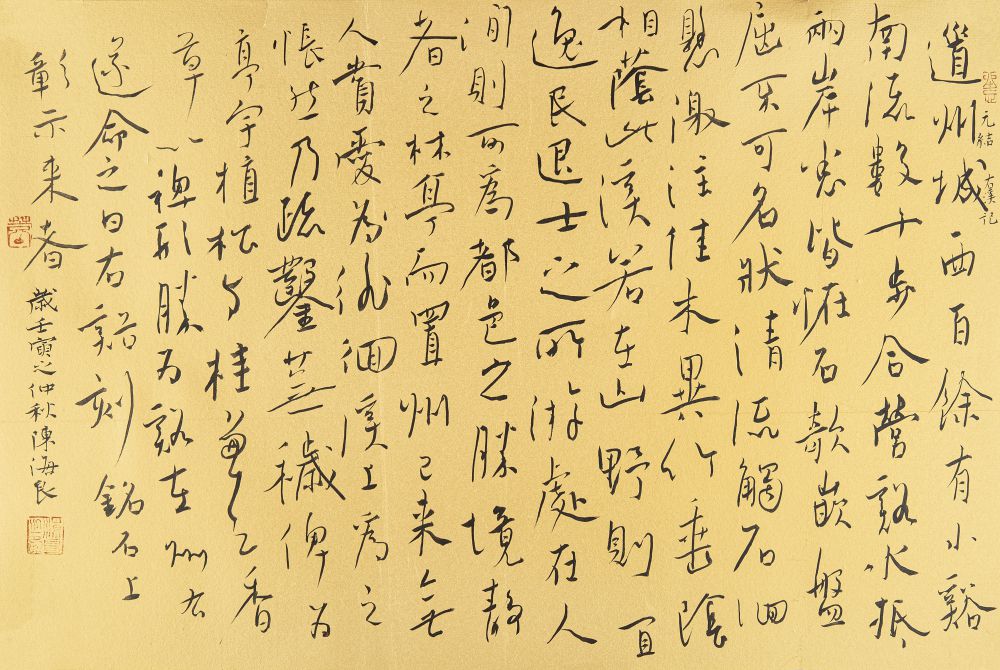 元結 右溪记
道州城西百餘有小谿
南流數十步合營谿水抵
兩岸悉皆怪石欹嵌盤
屈不可名狀清流觸石洄
懸激注佳木異竹垂陰
相蔭此溪若在山野則宜
逸民退士之所游處在人
间則可為都邑之勝境静
者之林亭而置州已来無
人賞愛为徘徊溪上為之
悵然乃疏鑿蕪穢俾为
亭宇植松与桂兼之香
草以裨形勝为谿在州右
遂命之曰右谿刻銘石上
彰示来者
歲壬寅之仲秋陳海良